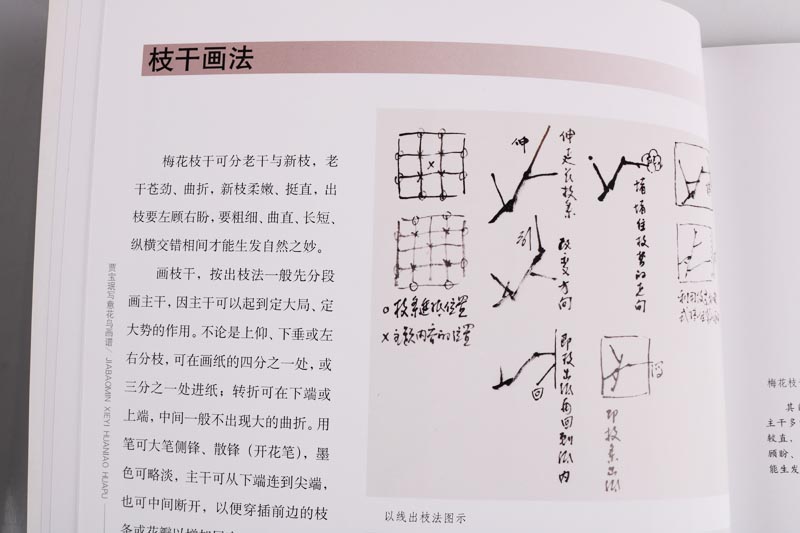 枝干画法
梅花枝干可分老干与新枝，老
干苍劲、曲折，新枝柔嫩、挺直，出
枝要左顾右盼，要粗细、曲直、长短、
纵横交错相间才能生发自然之妙。
画枝干，按出枝法一般先分段
画主干，因主干可以起到定大局、定
大势的作用。不论是上仰、下垂或左
右分枝，可在画纸的四分之一处，或
三分之一处进纸；转折可在下端或
上端，中间一般不出现大的曲折。用
笔可大笔侧锋、散锋（开花笔），墨
色可略淡，主干可从下端连到尖端，
也可中间断开，以便穿插前边的枝
贾宝珉写意花鸟画谱/JIABAOMIN XIEYI HUANIAO HUAPU
○枝系进纸位置
×主题内容的位置
伸
伸延花枝系
改变方向
回
即枝出纸再回到纸内
即枝系出纸
以线出枝法图示
梅花枝
其
主干多
较直，
顾盼、
能生发